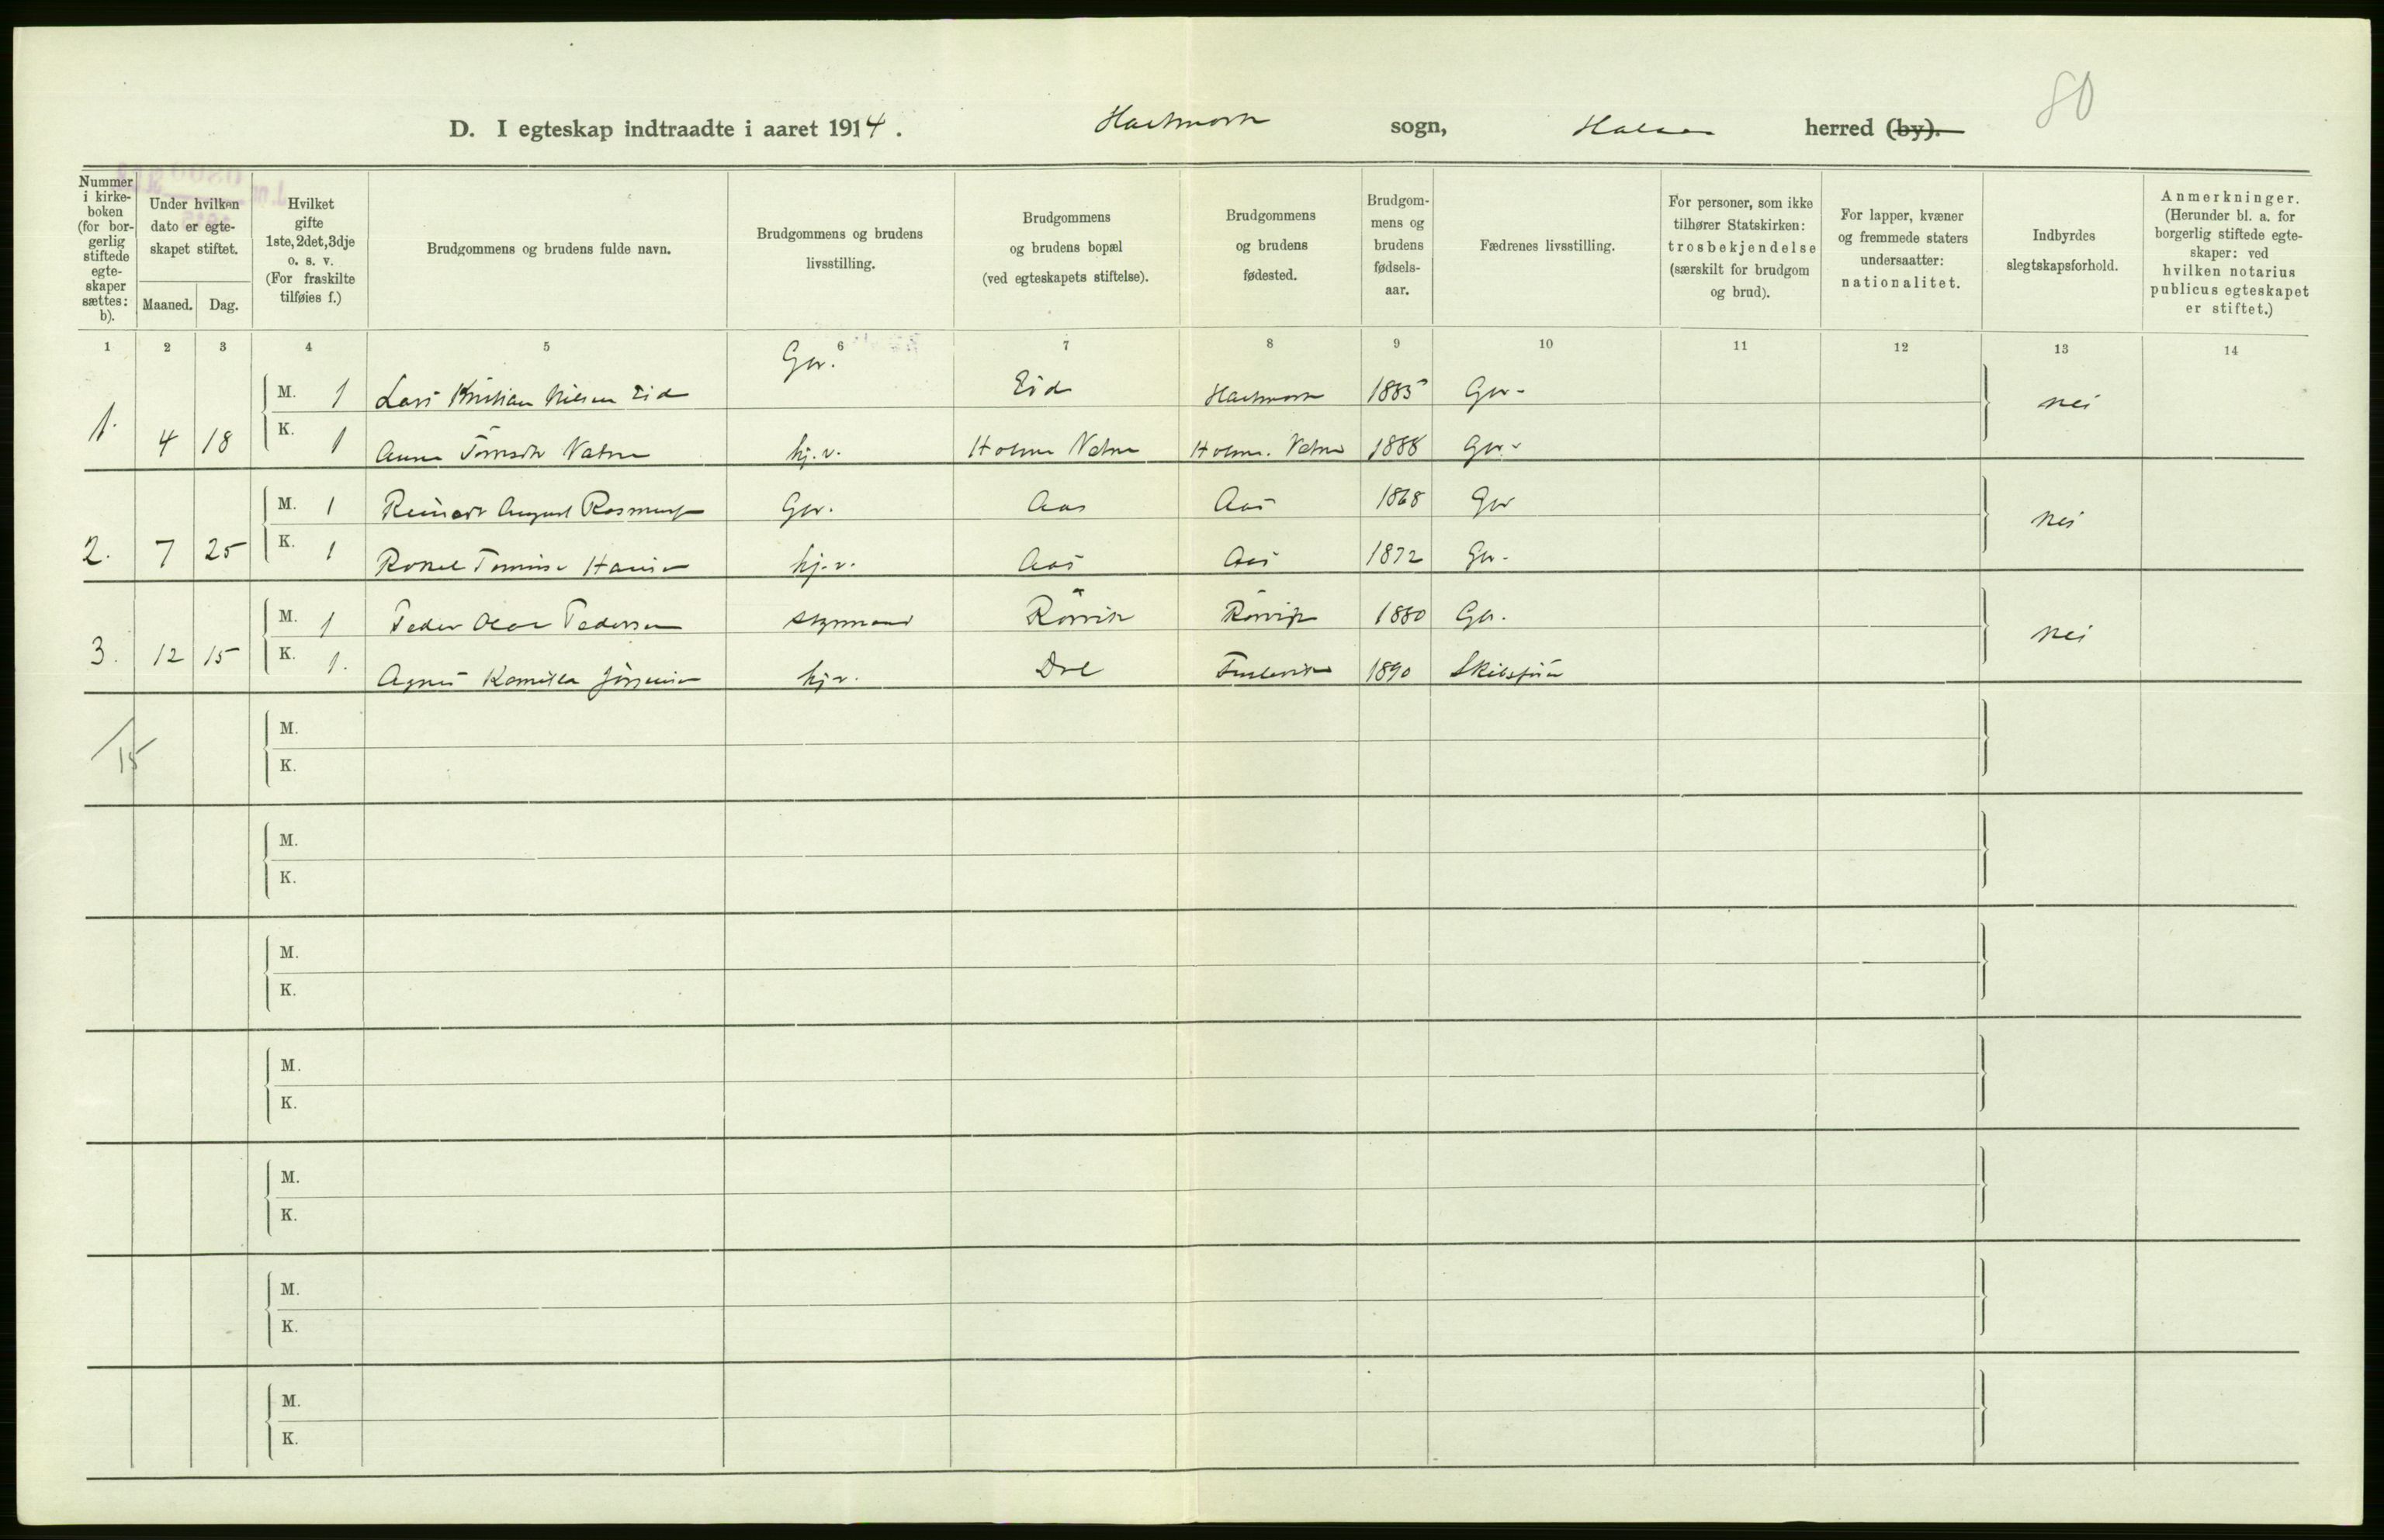 80
D. I egteskap indtraadte i aaret 1914. Hartmark sogn, Halsaa herred (by).
Nummer i kirke-boken (for bor-gerlig stiftede egte-skaper sættes: b).
Under hvilken dato er egte-skapet stiftet.
Maaned. Dag.
Hvilket gifte 1ste, 2det, 3dje o. s. v. (For fraskilte tilføies f.)
Brudgommens og brudens fulde navn.
Brudgommens og brudens livsstilling.
Brudgommens og brudens bopæl (ved egteskapets stiftelse).
Brudgommens og brudens fødested.
Brudgom-mens og brudens fødsels-aar.
Fædrenes livsstilling.
For personer, som ikke tilhører Statskirken: trosbekjendelse (særskilt for brudgom og brud).
For lapper, kvæner og fremmede staters undersaatter: nationalitet.
Indbyrdes slegtskapsforhold.
Anmerkninger. (Herunder bl. a. for borgerlig stiftede egte-skaper: ved hvilken notarius publicus egteskapet er stiftet.)
1 2 3 4 5 6 7 8 9 10 11 12 13 14
M. 1 Lars Kristian Nilsen Eid Gbr. Eid Hartmark 1885 Gbr. nei
1. 4 18 K. 1 Anna Tomsdtr Vatne hj.v. Holme Vatne Holme. Vatne 1888 Gbr.
M. 1 Reinert August Rasmus Gbr. Aas Aas 1868 Gbr nei
2. 7 25 K. 1 Hansen hj.v. Aas Aas 1872 Gbr.
M. 1 Peder Olai Pedersen styrmand Rørvik Rørvik 1880 Gbr. nei
3. 12 15 K. 1. Agnes Kamilla Jörgensen hj.v. 1890
15
M.
K.
M.
K.
M.
K.
M.
K.
M.
K.
M.
K.
M.
K.